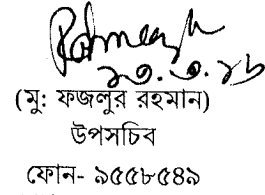 ২৩.৩.১৬
(মু: ফজলুর রহমান)
উপসচিব
ফোন- ৯৫৫৮৫৪৯